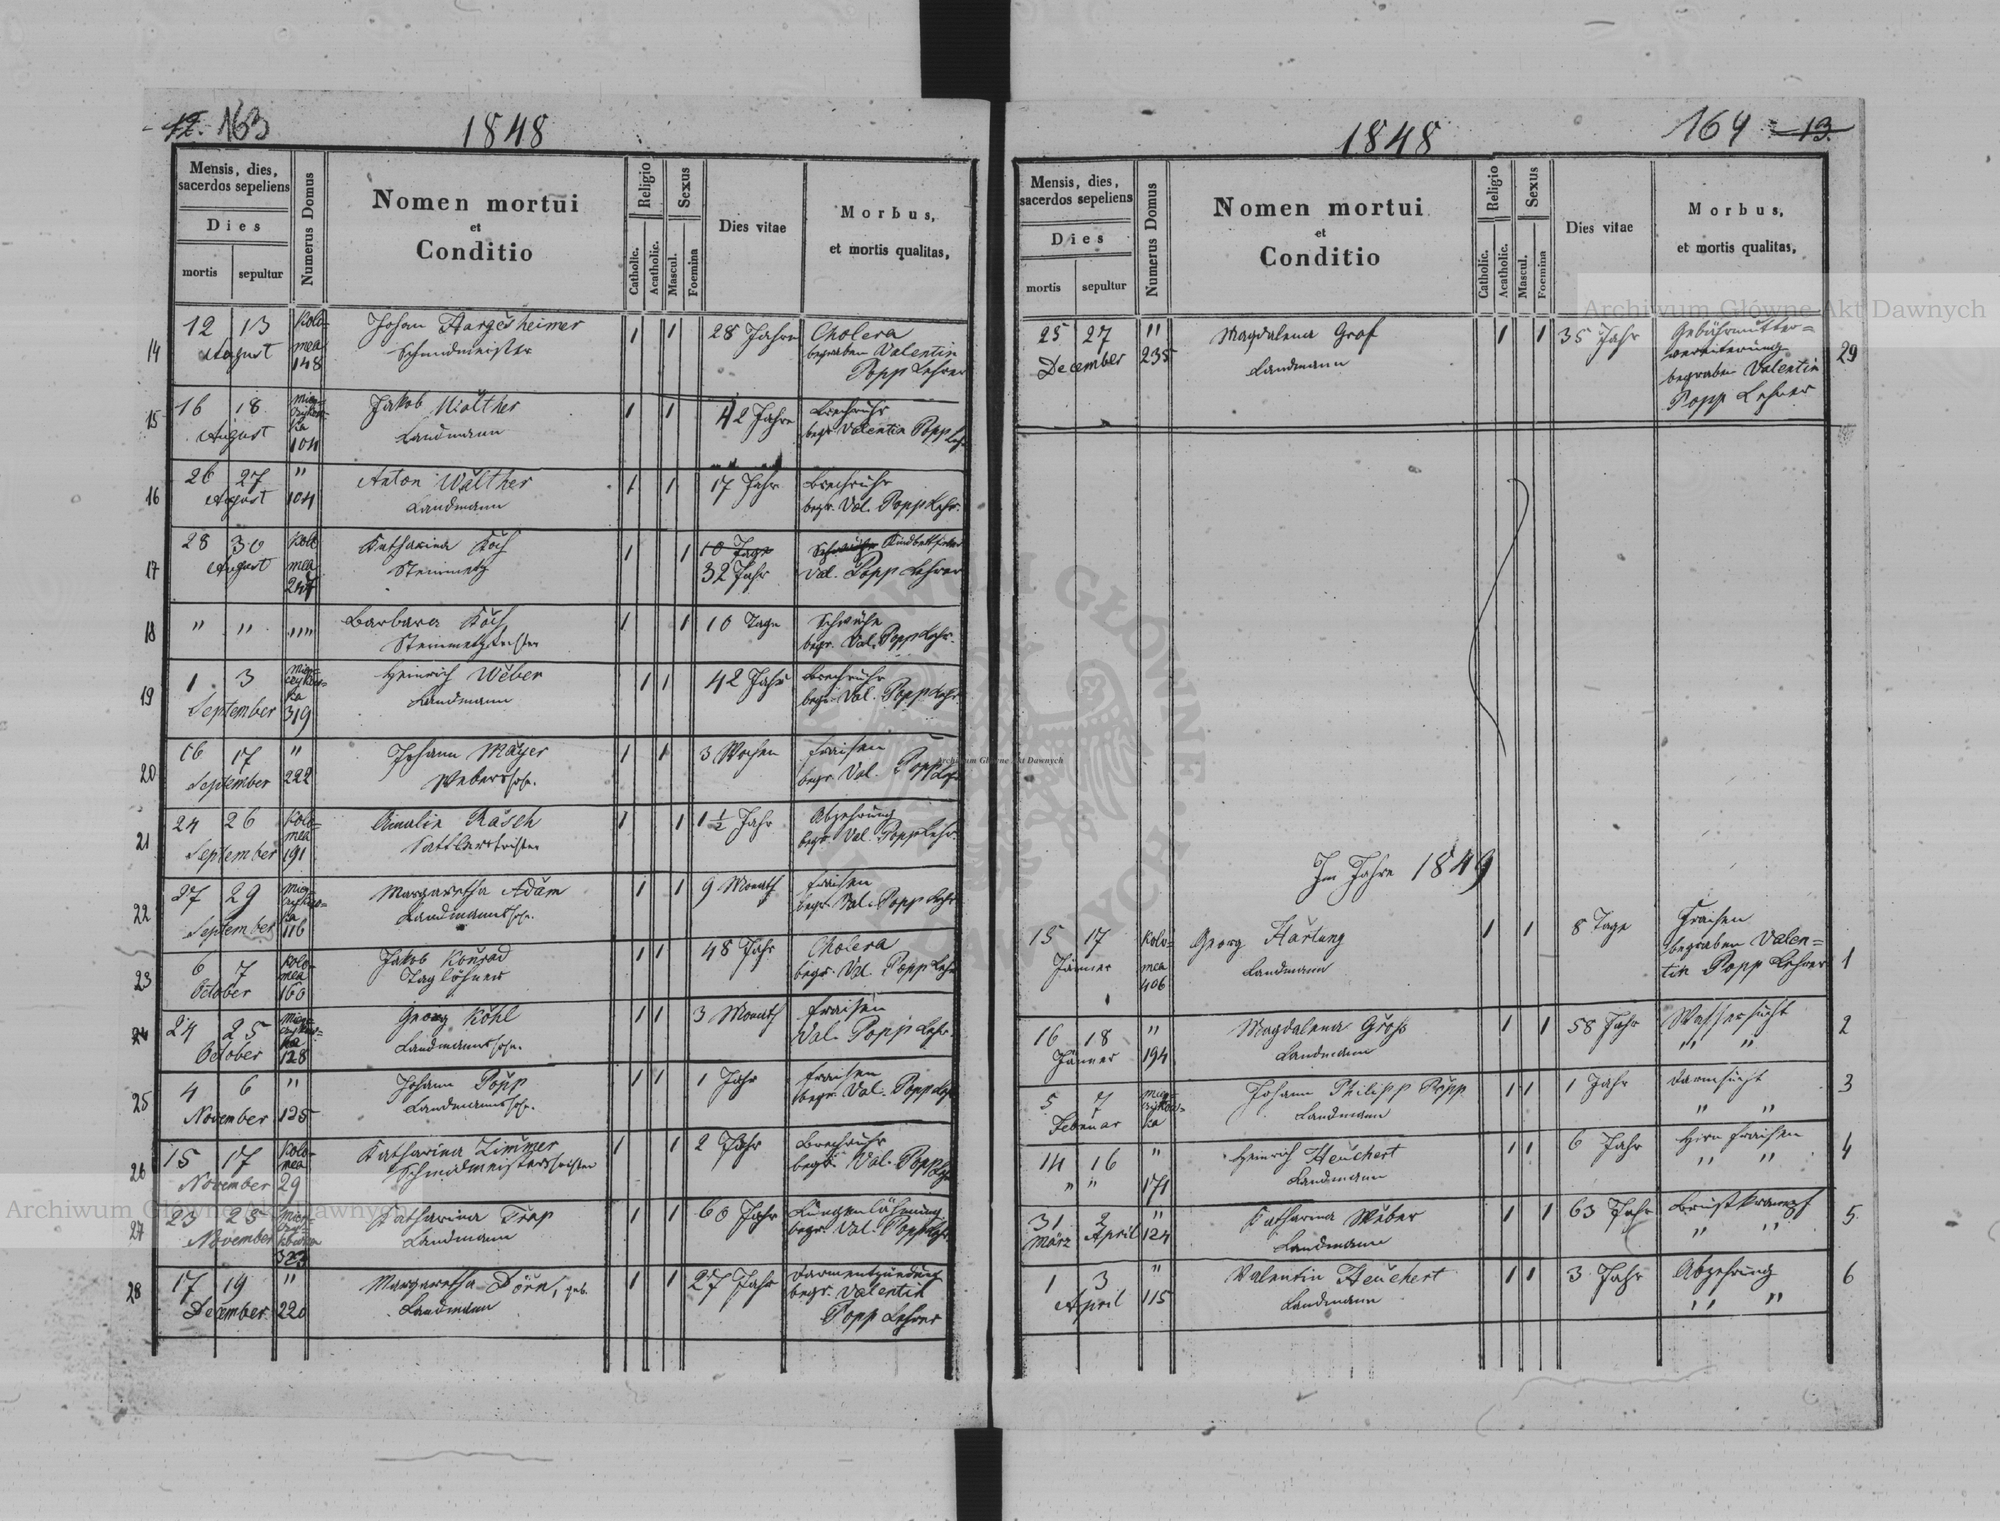 12. 163
1848
Mensis, dies, sacerdos sepeliens
Dies
mortis
sepultur
Numerus Domus
Nomen mortui
et
Conditio
Religio
Catholic.
Acatholic.
Sexus
Mascul.
Foemina
Dies vitae
Morbus,
et mortis qualitas,
14 12 13 Kolo= Johan Hargesheimer 1 1 28 Jahre Cholera
August mea Schmidmeister begraben Valentin
148 Popp Lehrer
15 16 18 Jakob Walther 1 1 42 Jahre Brechruhr
August 104 Landmann begr. Valentin Popp Lehr
16 26 27 " Anton Walther 1 1 17 Jahr Brechruhr
August 104 Landmann begr. Val. Popp Lehr.
17 28 30 Kolo Katharina Koch 1 1 10 Tage Schwäche Kindbettfieber
August mea Steinmetz 32 Jahr Val. Popp Lehrer
247
18 " " "" Barbara Koch 1 1 10 Tage Schwäche
begr. Val. Popp Lehr.
19 1 3 Heinrich Weber 1 1 42 Jahr Brechruhr
September 319 Landmann begr. Val. Popp Lehr
20 16 17 " Johann Mayer 1 1 3 Wochen Fraisen
September 222 Weberssohn. begr. Val. Popp Lehr
21 24 26 Kolo= Amalia Rasch 1 1 1 1/2 Jahr Abzehrung
September mea 191 begr. Val. Popp Lehr.
22 27 29 Margaretha Adam 1 1 9 Monath Fraisen
September 116 Landmannssohn. begr. Val. Popp Lehr
23 6 7 Kolo= Jakob Konrad 1 1 48 Jahr Cholera
October mea 160 Taglöhner begr. Val. Popp Lehr
24 24 25 Georg Köhl 1 1 3 Monath Fraisen
October ka 128 Landmannssohn. Val. Popp Lehr.
25 4 6 " Johann Popp 1 1 1 Jahr Fraisen
November 125 Landmannssohn. begr. Val. Popp Lehr
26 15 17 Kolo= Katharina Zimmer 1 1 2 Jahr Brechruhr
November mea 29 begr. Val. Popp Lehr
27 23 25 Katharina Trap 1 1 60 Jahr Lungenlähmung
November 323 Landmann begr. Val. Popp Lehr
28 17 19 " Margaretha Dörn, geb. 1 1 27 Jahr Darmentzündung
December 220 Landmann begr. Valentin
Popp Lehrer
164 13.
1848
Mensis, dies, sacerdos sepeliens
Dies
mortis
sepultur
Numerus Domus
Nomen mortui
et
Conditio
Religio
Catholic.
Acatholic.
Sexus
Mascul.
Foemina
Dies vitae
Morbus,
et mortis qualitas,
25 27 " Magdalena Graf 1 1 35 Jahr Gebährmutter= 29
December 235 Landmann vereiterung
begraben Valentin
Popp Lehrer
Im Jahre 1849
15 17 Kolo= Georg Hartung 1 1 8 Tage Fraisen 1
Jänner mea Landmann begraben Valen=
406 tin Popp Lehrer
16 18 " Magdalena Groß 1 1 58 Jahr Wassersucht 2
Jänner 194 Landmann " "
5 7 Johann Philipp Popp 1 1 1 Jahr Darmsucht 3
Februar ka Landmann " "
14 16 " Heinrich Heuchert 1 1 6 Jahr Hirn Fraisen 4
" " 171 Landmann " "
31 2 " Katharina Weber 1 1 63 Jahr Brustkrampf 5
März April 124 Landmann " "
1 3 " Valentin Heuchert 1 1 3 Jahr Abzehrung 6
April 115 Landmann " "
Archiwum Główne Akt Dawnych
Archiwum Główne Akt Dawnych
Archiwum Główne Akt Dawnych